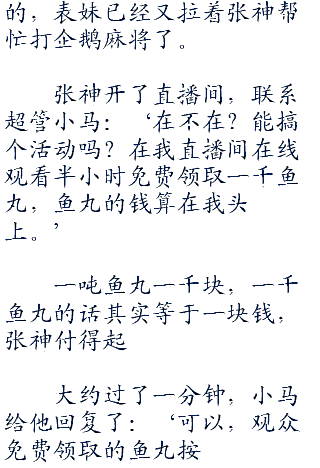 的，表妹已经又拉着张神帮
忙打企鹅麻将了。
张神开了直播间，联系
超管小马：‘在不在？能搞
个活动吗？在我直播间在线
观看半小时免费领取一千鱼
丸，鱼丸的钱算在我头
上。’
一吨鱼丸一千块，一千
鱼丸的话其实等于一块钱，
张神付得起
大约过了一分钟，小马
给他回复了：‘可以，观众
免费领取的鱼丸按